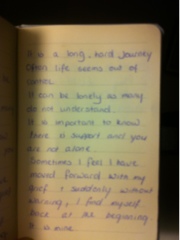 It is a long, hard journey
Often life seems out of
control.
It can be lonely as many
do not understand.
It is important to know
there is support and you
are not alone.
Sometimes I feel I have
moved forward with my
grief & suddenly without
warning, I find myself
back at the beginning.
It is